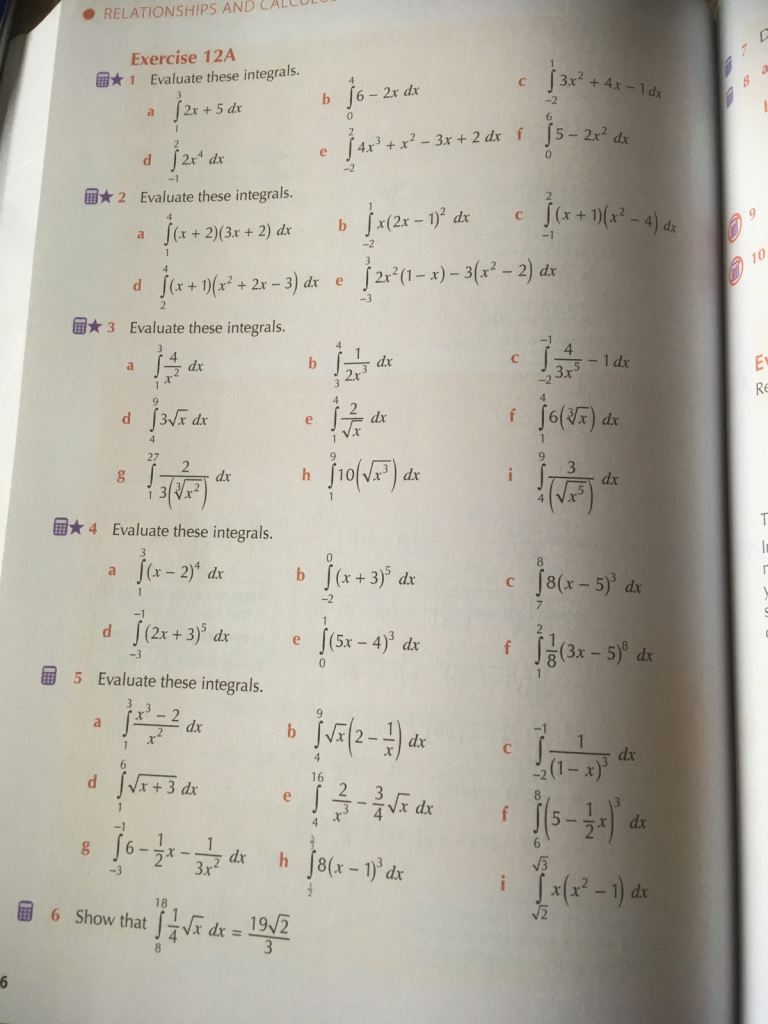 ● RELATIONSHIPS AND
Exercise 12A
★ 1 Evaluate these integrals.
a ∫₁³ 2x + 5 dx b ∫₀⁴ 6 − 2x dx c ∫₋₂¹ 3x² + 4x − 1 dx
d ∫₋₁² 2x⁴ dx e ∫₋₂² 4x³ + x² − 3x + 2 dx f ∫₀⁶ 5 − 2x² dx
★ 2 Evaluate these integrals.
a ∫₁⁴ (x + 2)(3x + 2) dx b ∫₋₂¹ x(2x − 1)² dx c ∫₋₁² (x + 1)(x² − 4) dx
d ∫₂⁴ (x + 1)(x² + 2x − 3) dx e ∫₋₃³ 2x²(1 − x) − 3(x² − 2) dx
★ 3 Evaluate these integrals.
a ∫₁³ 4/x² dx b ∫₃⁴ 1/2x³ dx c ∫₋₂⁻¹ 4/3x⁵ − 1 dx
d ∫₄⁹ 3√x dx e ∫₁⁴ 2/√x dx f ∫₁⁴ 6(∛x) dx
g ∫₁²⁷ 2/3(∛x²) dx h ∫₁⁹ 10(√x³) dx i ∫₄⁹ 3/(√x⁵) dx
★ 4 Evaluate these integrals.
a ∫₁³ (x − 2)⁴ dx b ∫₋₂⁰ (x + 3)⁵ dx c ∫₇⁸ 8(x − 5)³ dx
d ∫₋₃⁻¹ (2x + 3)⁵ dx e ∫₀¹ (5x − 4)³ dx f ∫₁² 1/8 (3x − 5)⁸ dx
5 Evaluate these integrals.
a ∫₁³ (x³ − 2)/x² dx b ∫₄⁹ √x(2 − 1/x) dx c ∫₋₂⁻¹ 1/(1 − x)³ dx
d ∫₁⁶ √(x + 3) dx e ∫₄¹⁶ 2/x³ − 3/4 √x dx f ∫₆⁸ (5 − 1/2 x)³ dx
g ∫₋₃⁻¹ 6 − 1/2 x − 1/3x² dx h ∫ 8(x − 1)³ dx i ∫ from √2 to √3 x(x² − 1) dx
6 Show that ∫₈¹⁸ 1/4 √x dx = 19√2/3
6
7
8 a
9
10